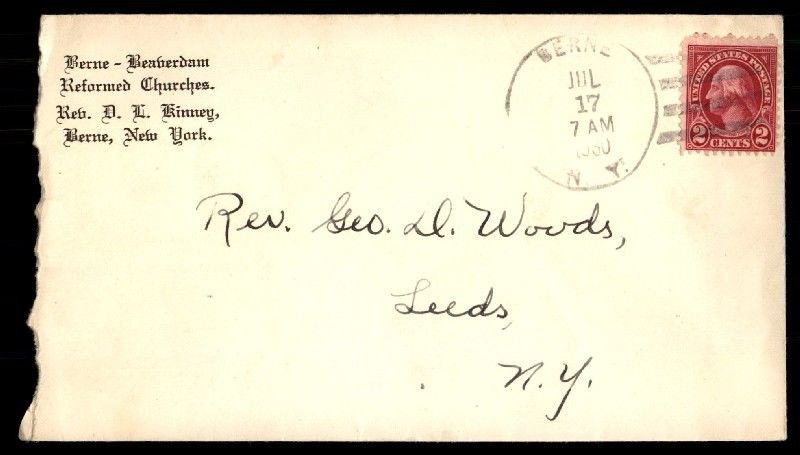 Berne - Beaverdam
Reformed Churches.
Rev. D. L. Kinney,
Berne, New York.
BERNE
JUL
17
7 AM
1930
N. Y.
UNITED STATES POSTAGE
2 CENTS 2
Rev. Geo. D. Woods,
Leeds,
N.Y.